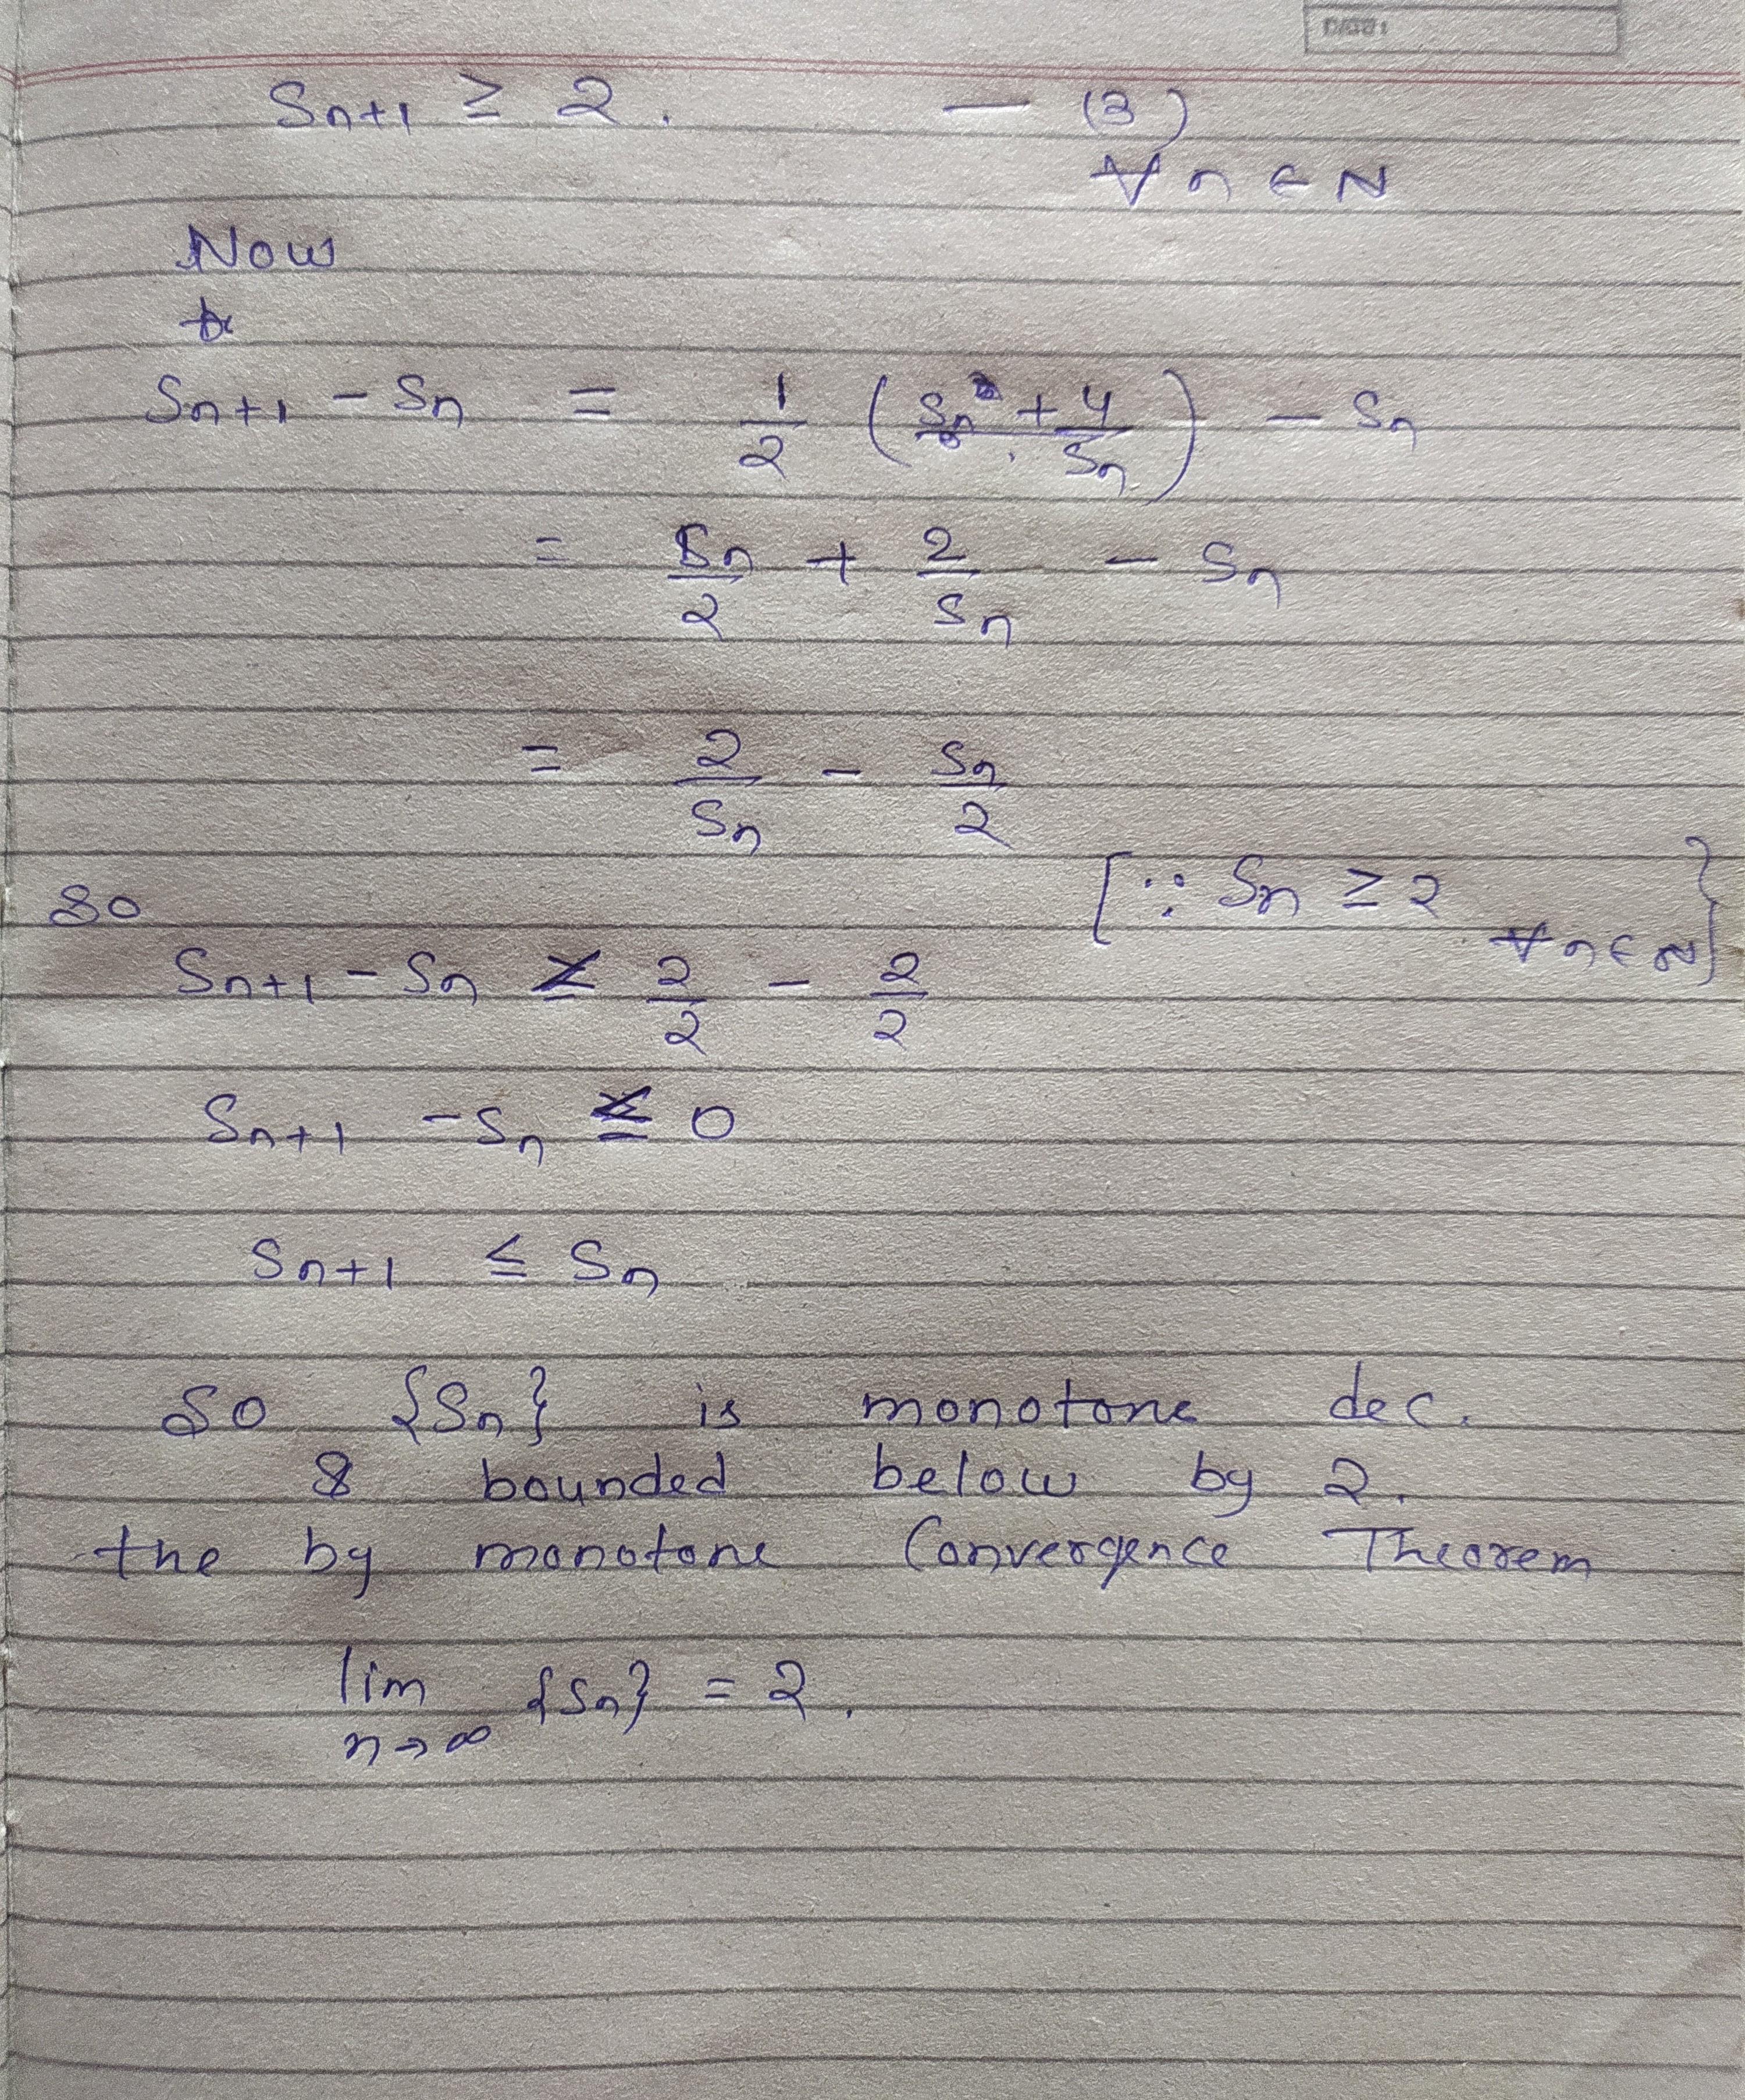 DATE:
Sn+1 ≥ 2. — (3)
∀ n ∈ N
Now
Sn+1 - Sn = 1/2 (Sn + 4/Sn) - Sn
= Sn/2 + 2/Sn - Sn
= 2/Sn - Sn/2
[∵ Sn ≥ 2 ∀ n ∈ N}
So
Sn+1 - Sn ≤ 2/2 - 2/2
Sn+1 - Sn ≤ 0
Sn+1 ≤ Sn
So {Sn} is monotone dec.
& bounded below by 2.
the by monotone Convergence Theorem
lim n→∞ {Sn} = 2.